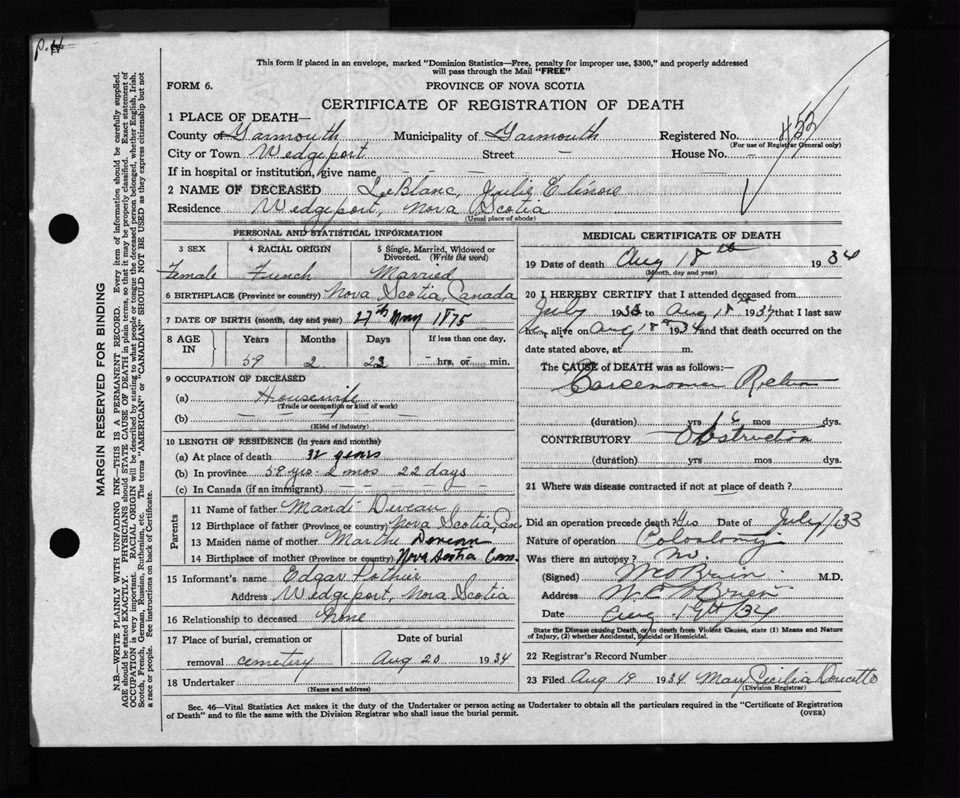 P.H
This form if placed in an envelope, marked "Dominion Statistics—Free, penalty for improper use, $300," and properly addressed
will pass through the Mail "FREE"
FORM 6.
PROVINCE OF NOVA SCOTIA
CERTIFICATE OF REGISTRATION OF DEATH
1 PLACE OF DEATH—
County of Yarmouth Municipality of Yarmouth Registered No.
(For use of Registrar General only)
City or Town Wedgeport Street — House No. -
If in hospital or institution, give name — — —
2 NAME OF DECEASED LeBlanc, Julie Elinore
Residence Wedgeport, Nova Scotia
(Usual place of abode)
PERSONAL AND STATISTICAL INFORMATION
3 SEX 4 RACIAL ORIGIN 5 Single, Married, Widowed or
Divorced. (Write the word)
Female French Married
6 BIRTHPLACE (Province or country) Nova Scotia, Canada
7 DATE OF BIRTH (month, day and year) 27th May 1875
8 AGE IN Years Months Days If less than one day,
59 2 22 — hrs. or — min.
9 OCCUPATION OF DECEASED
(a) Housewife
(Trade or occupation or kind of work)
(b) — — —
(Kind of industry)
10 LENGTH OF RESIDENCE (in years and months)
(a) At place of death 32 years
(b) In province 59 yrs. 2 mos 22 days
(c) In Canada (if an immigrant) — — — —
Parents
11 Name of father Mandé
12 Birthplace of father (Province or country) Nova Scotia, Can.
13 Maiden name of mother Marthe
14 Birthplace of mother (Province or country) Nova Scotia Can.
15 Informant's name Edgar Pothier
Address Wedgeport, Nova Scotia
16 Relationship to deceased None
17 Place of burial, cremation or Date of burial
removal cemetery Aug 20 1934
18 Undertaker
(Name and address)
MEDICAL CERTIFICATE OF DEATH
19 Date of death Aug 18th 1934
(Month, day and year)
20 I HEREBY CERTIFY that I attended deceased from
July 193 to Aug 18th 1934 that I last saw
her alive on Aug 18th 1934 and that death occurred on
date stated above, at m.
The CAUSE of DEATH was as follows:—
(duration) yrs mos dys.
CONTRIBUTORY Obstruction
(duration) yrs mos dys.
21 Where was disease contracted if not at place of death?
Did an operation precede death? Yes Date of July/33
Nature of operation Colostomy
Was there an autopsy? no.
(Signed) M.D.
Address
Date Aug 19th/34
State the Disease causing Death, or in death from Violent Causes, state (1) Means and Nature
of Injury, (2) whether Accidental, Suicidal or Homicidal.
22 Registrar's Record Number
23 Filed Aug 19 1934 Mary Cecilia Doucette
(Division Registrar)
Sec. 46—Vital Statistics Act makes it the duty of the Undertaker or person acting as Undertaker to obtain all the particulars required in the "Certificate of Registration
of Death" and to file the same with the Division Registrar who shall issue the burial permit.
(OVER)
MARGIN RESERVED FOR BINDING
N.B.—WRITE PLAINLY WITH UNFADING INK—THIS IS A PERMANENT RECORD. Every item of information should be carefully supplied.
AGE should be stated EXACTLY. PHYSICIANS should STATE CAUSE OF DEATH in plain terms, so that it may be properly classified. Exact statement of
OCCUPATION is very important. RACIAL ORIGIN will be described by stating to what people or tongue the deceased person belonged, whether English, Irish,
Scotch, French, German, Russian, Ruthenian, etc. The terms "AMERICAN" or "CANADIAN" SHOULD NOT BE USED as they express citizenship but not
a race or people. See instructions on back of Certificate.